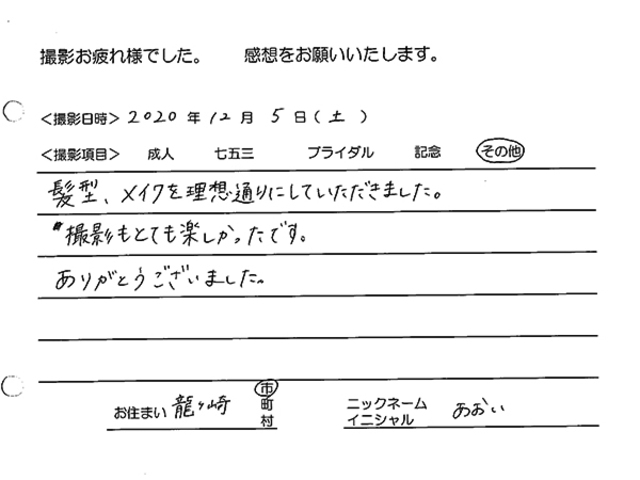 撮影お疲れ様でした。 感想をお願いいたします。
＜撮影日時＞ 2020 年 12 月 5 日（土）
＜撮影項目＞ 成人 七五三 ブライダル 記念 その他
髪型、メイクを理想通りにしていただきました。
撮影もとても楽しかったです。
ありがとうございました。
お住まい 龍ヶ崎 市 町 村
ニックネーム イニシャル あおい